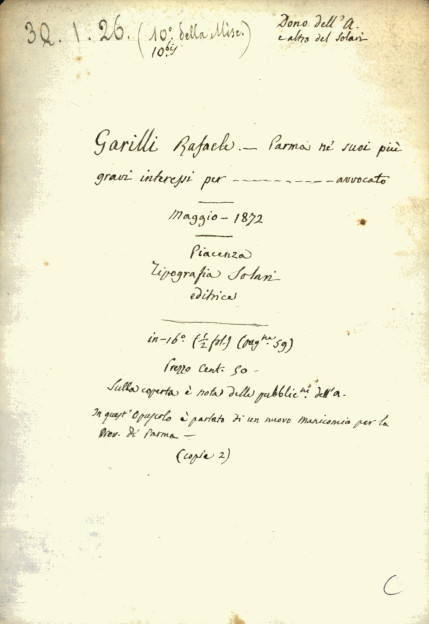 3Q.1.26. (10º della Misc.)
10bis
Dono dell'A.
e altro del Solari
Garilli Rafaele. — Parma né suoi più
gravi interessi per ---------- avvocato
Maggio - 1872
Piacenza
Tipografia Solari
editrice
in-16º (½ fol.) (pag.ne 59)
Prezzo Cent. 50 -
Sulla coperta è nota delle pubblic.ni dell'A.
In quest'Opuscolo è parlato di un nuovo manicomio per la
Prov. di Parma —
(copie 2)
C